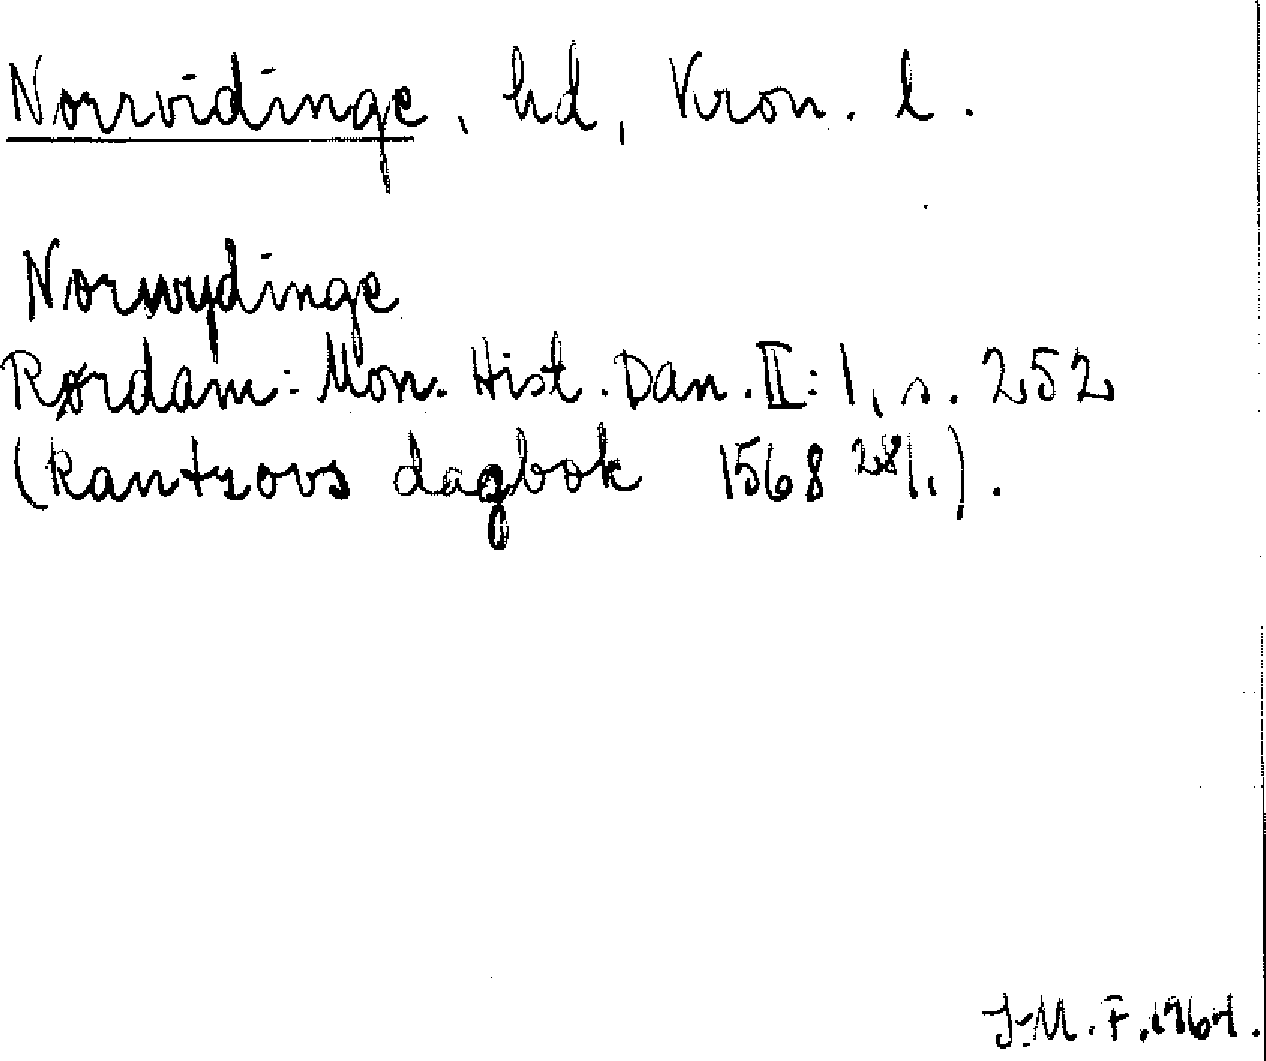 Norrvidinge, hd, Kron. l.
Norwydinge
Rørdam: Mon. Hist. Dan. II: 1, s. 252
(Rantzovs dagbok 1568 28/1.).
J-M. F. 1964.